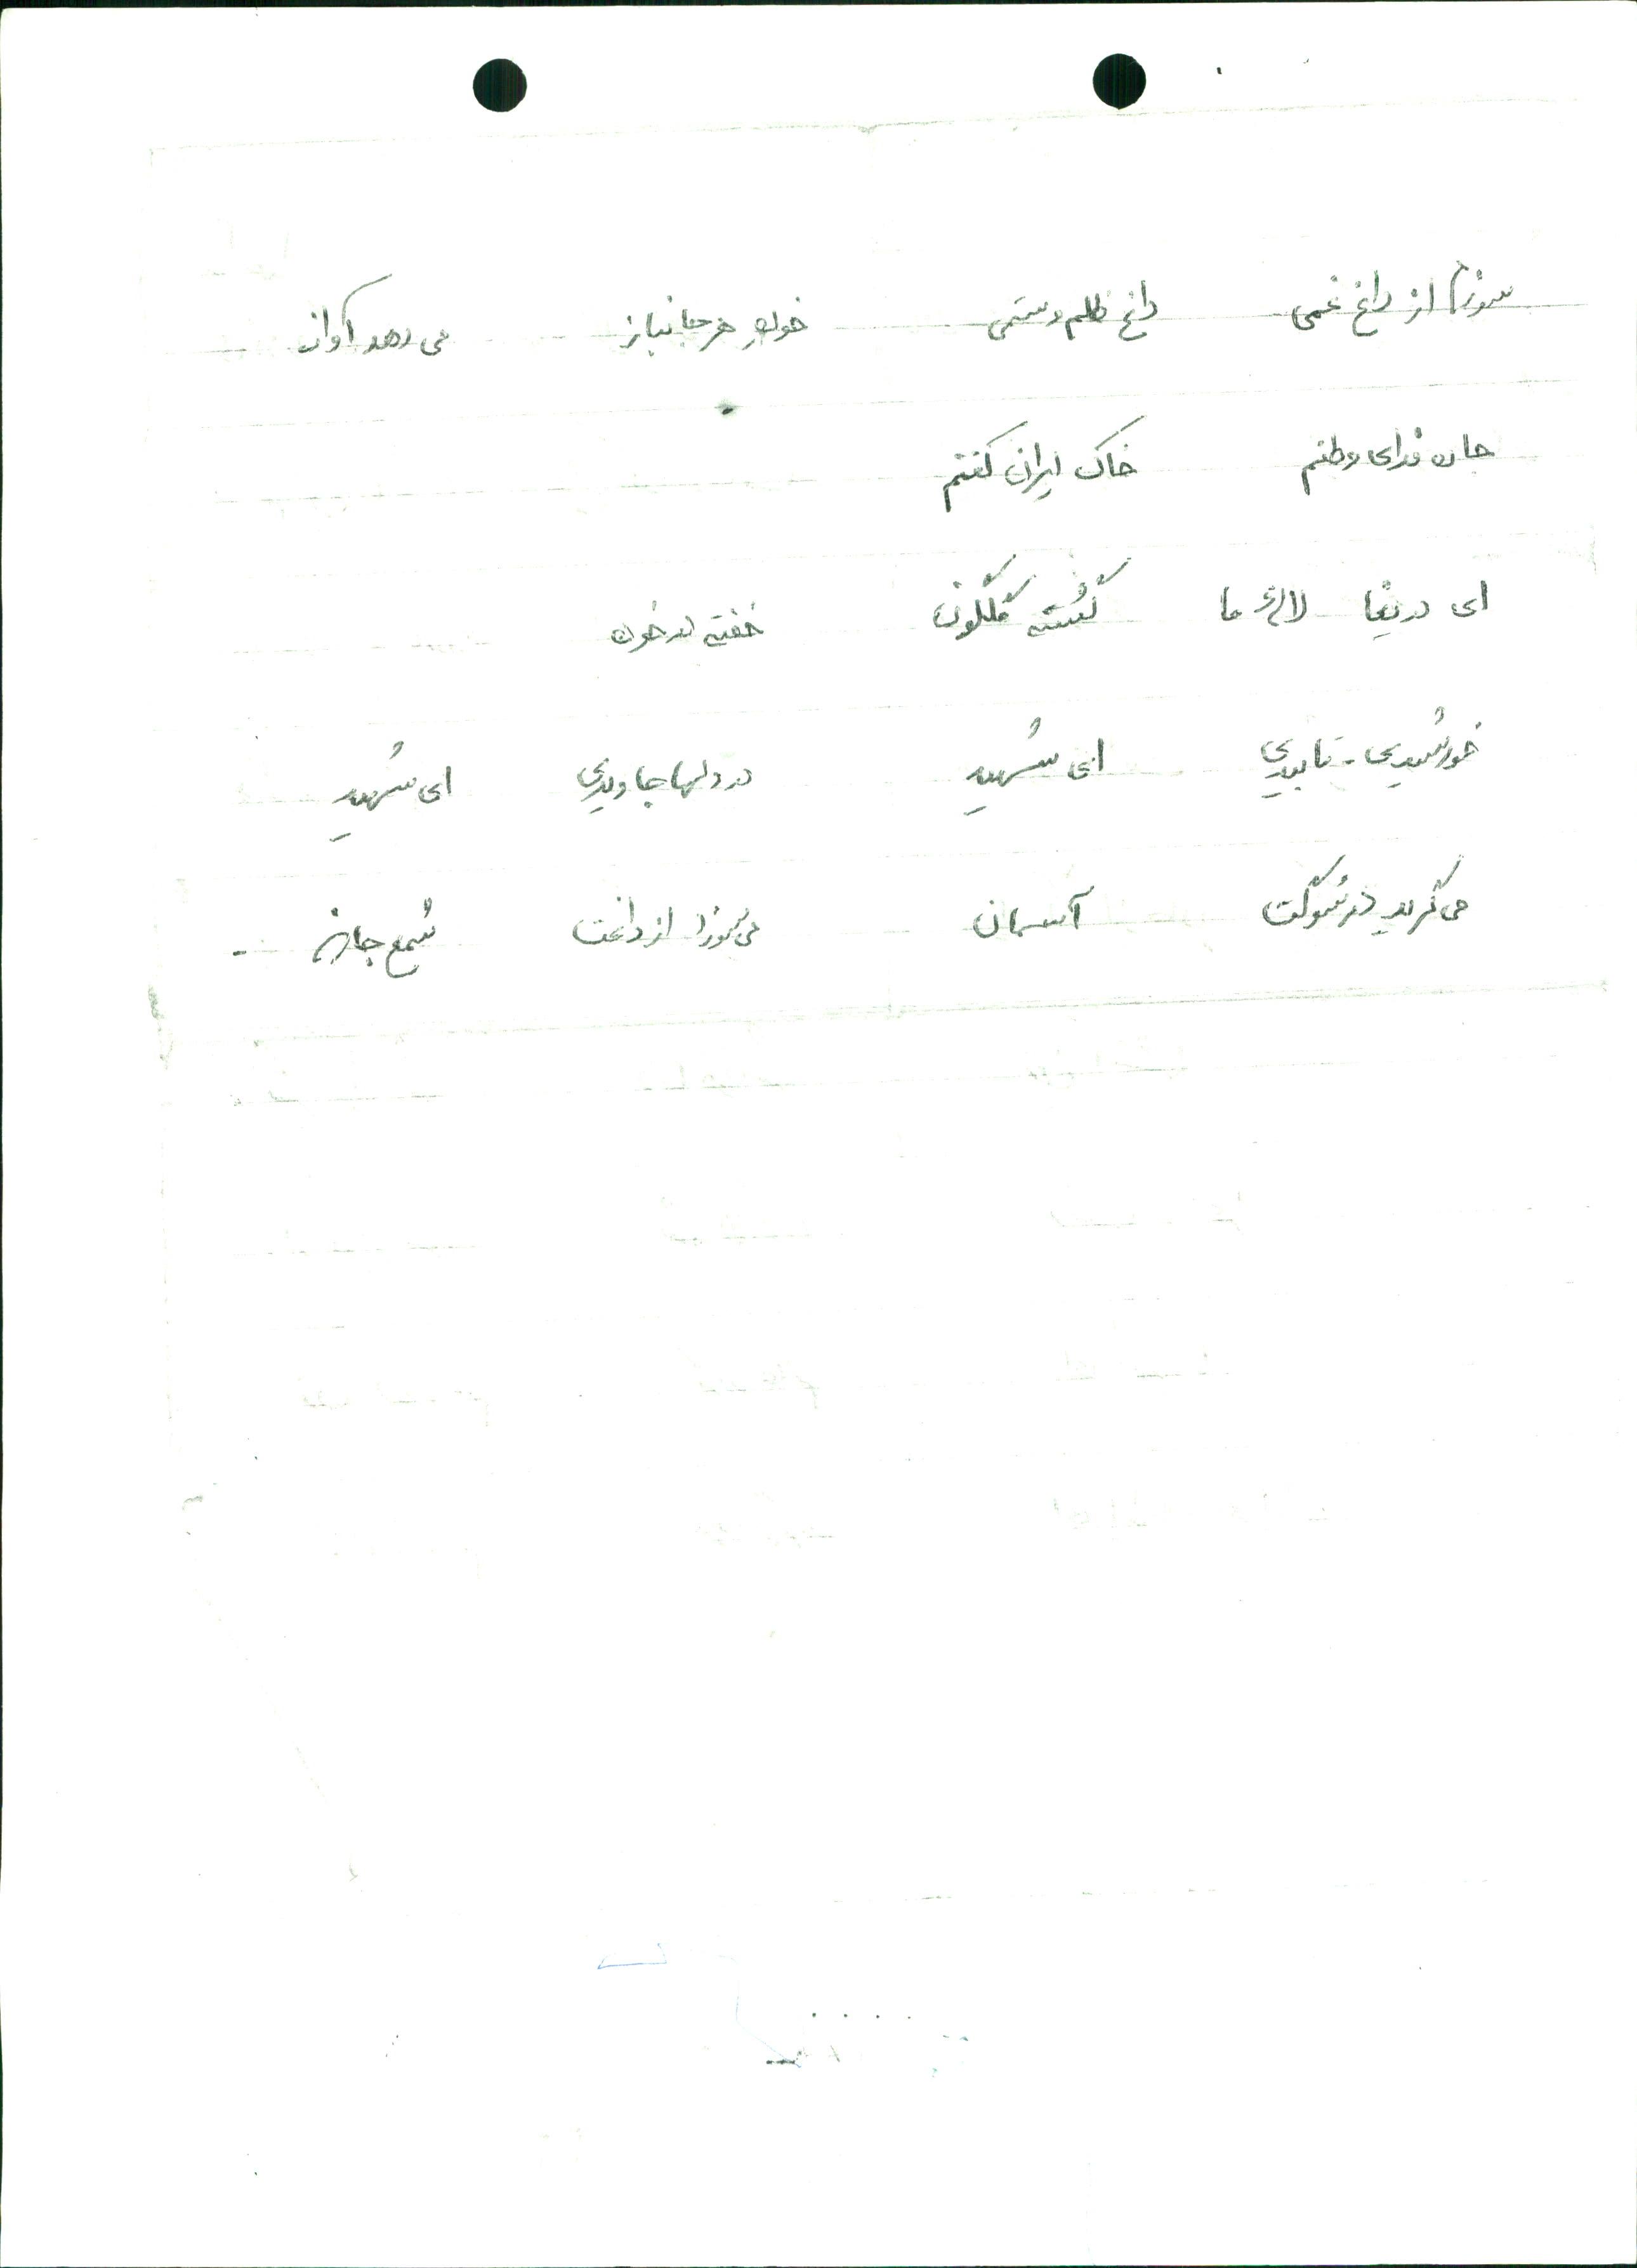 سوزم از داغ غمی داغ ظلم و ستمی خون هر جانباز می دهد آواز
جان فدای وطنم خاک ایران کفنم
ای دریغا لالهٔ ما گشته گلگون خفته در خون
خورشیدی - تابیدی ای شهید در دلها جاویدی ای شهید
می گرید در سوگت آسمان می سوزد از داغت شمع جان